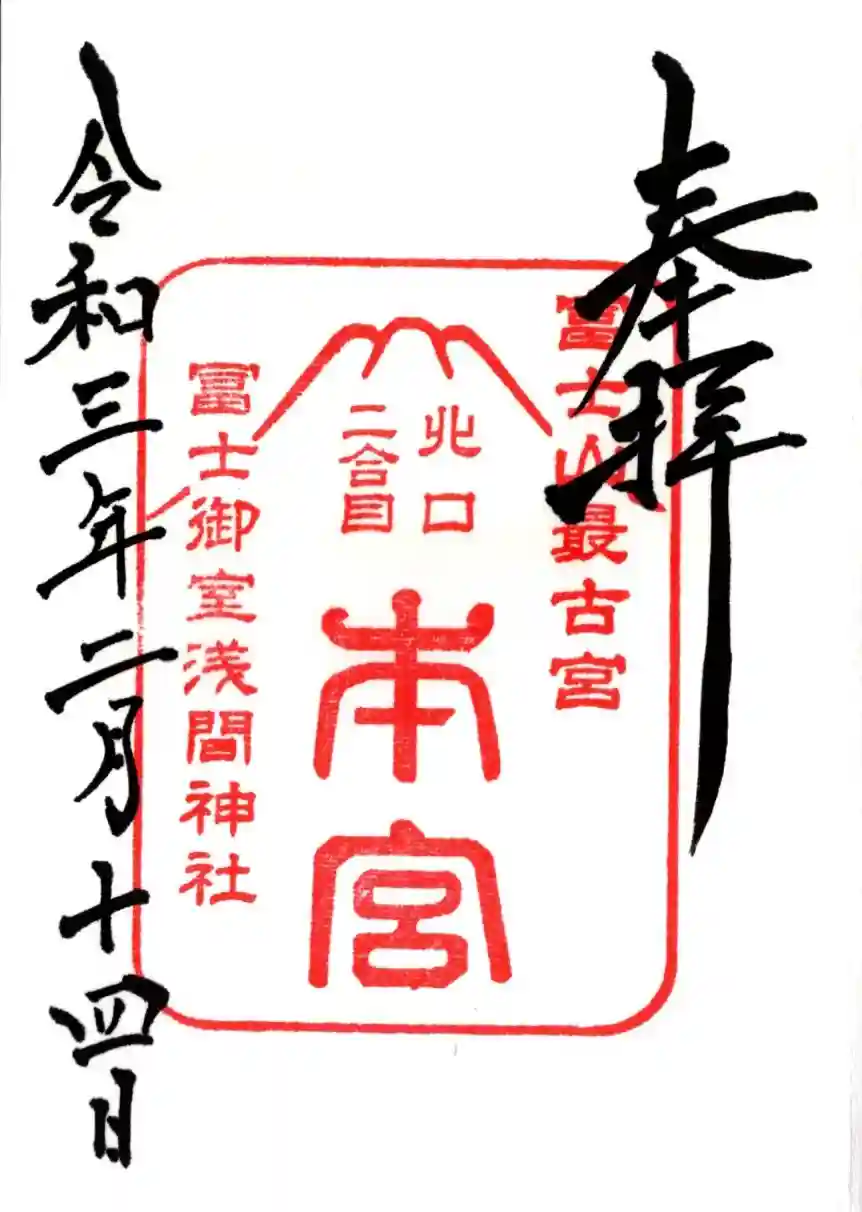 奉拝
冨士山最古宮
北口
二合目
本宮
冨士御室浅間神社
令和三年二月十四日